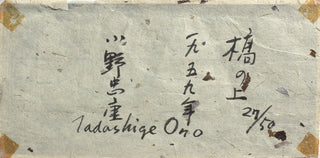 橋の上
27/50
一九五九年
小野忠重
Tadashige Ono